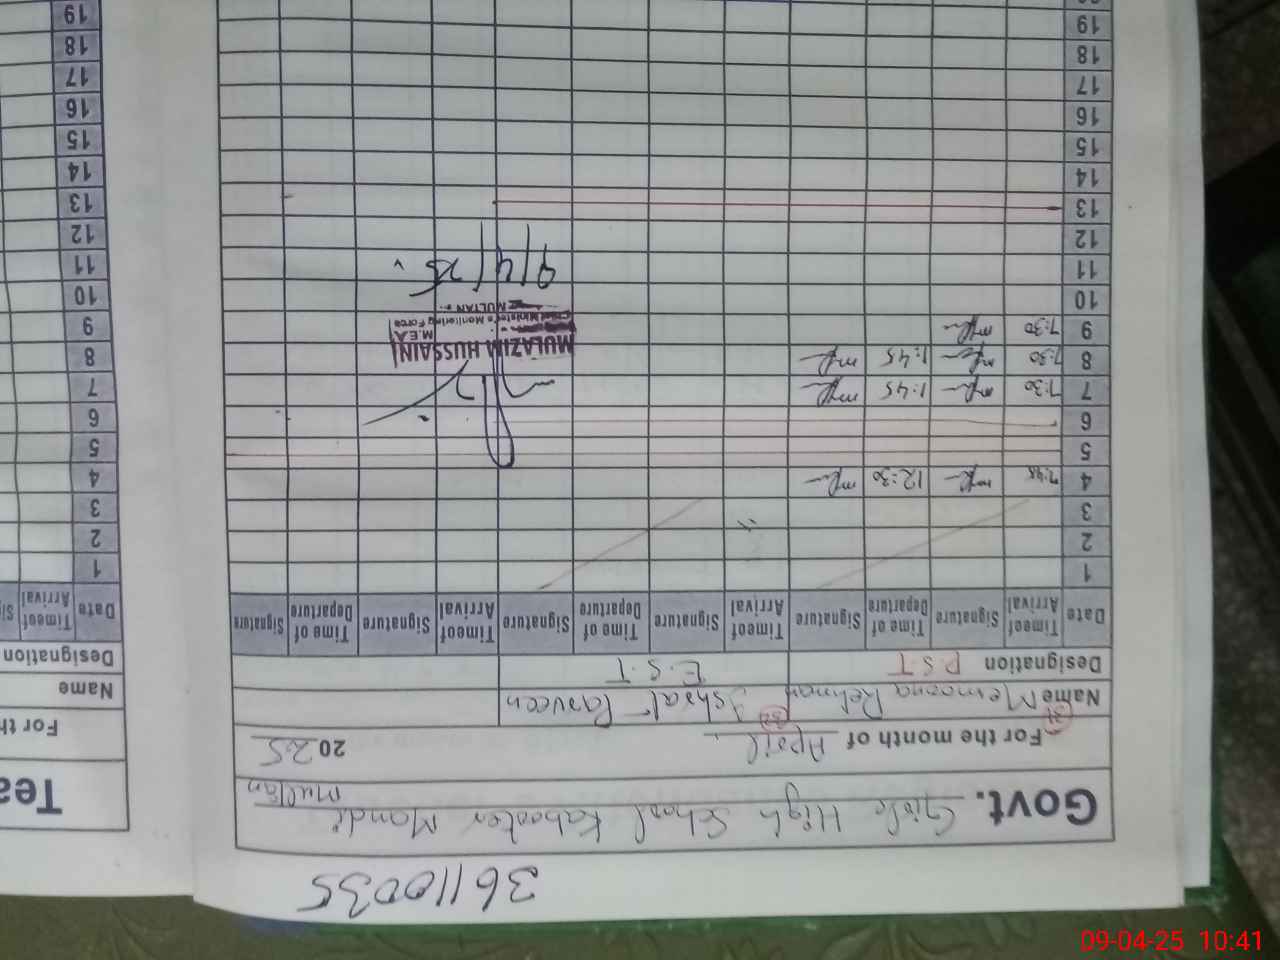 36110035
Govt. Girls High School Kabooter Mandi
Multan
For the month of April 2025
31
32
Name Memoona Rehman Ishrat Parveen
Designation P.S.T E.S.T
Date Timeof Arrival Signature Time of Departure Signature Timeof Arrival Signature Time of Departure Signature Timeof Arrival Signature Time of Departure Signature
1
2
3
4 7:45 12:30
5
6
7 7:30 1:45
8 7:30 1:45
9 7:30
10
11
12
13
14
15
16
17
18
19
MULAZIM HUSSAIN
M.E.A
Chief Minister's Monitoring Force
MULTAN
9/4/25
Tea
For th
Name
Designation
Date Timeof Arrival Si
1
2
3
4
5
6
7
8
9
10
11
12
13
14
15
16
17
18
19
09-04-25 10:41